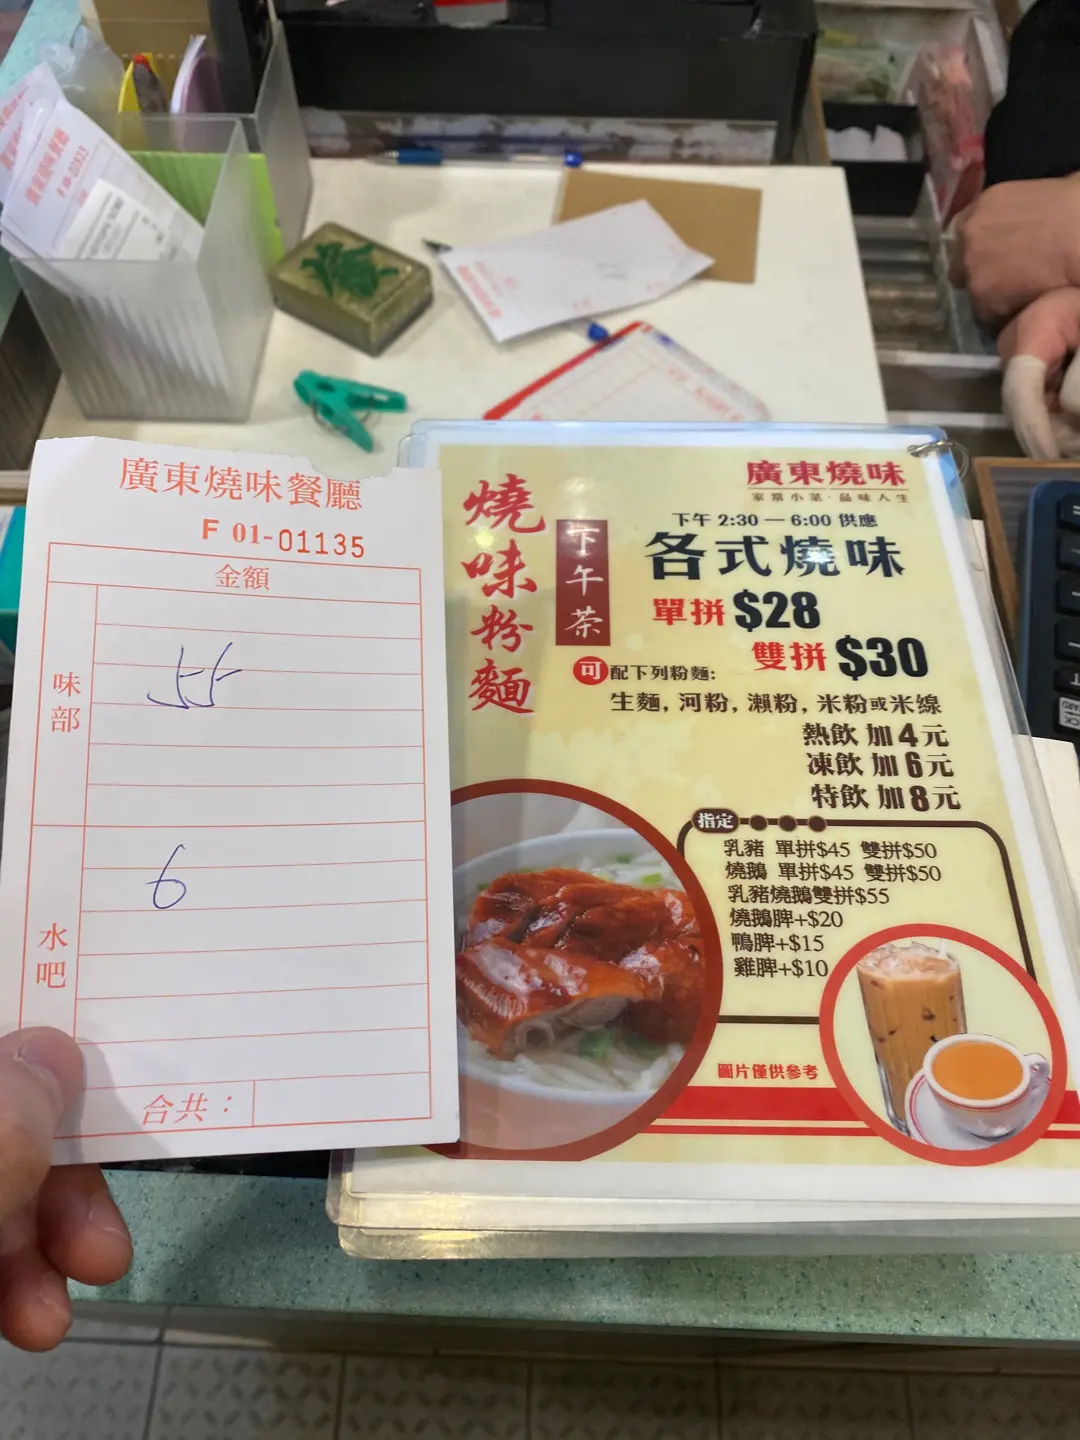 廣東燒味餐廳
F 01-01135
金額
味部
55
水吧
6
合共：
燒味粉麵
下午茶
廣東燒味
家常小菜·品味人生
下午 2:30 — 6:00 供應
各式燒味
單拼 $28
雙拼 $30
可配下列粉麵:
生麵, 河粉, 瀨粉, 米粉或米線
熱飲 加 4 元
凍飲 加 6 元
特飲 加 8 元
指定
乳豬 單拼$45 雙拼$50
燒鵝 單拼$45 雙拼$50
乳豬燒鵝雙拼$55
燒鵝脾+$20
鴨脾+$15
雞脾+$10
圖片僅供參考